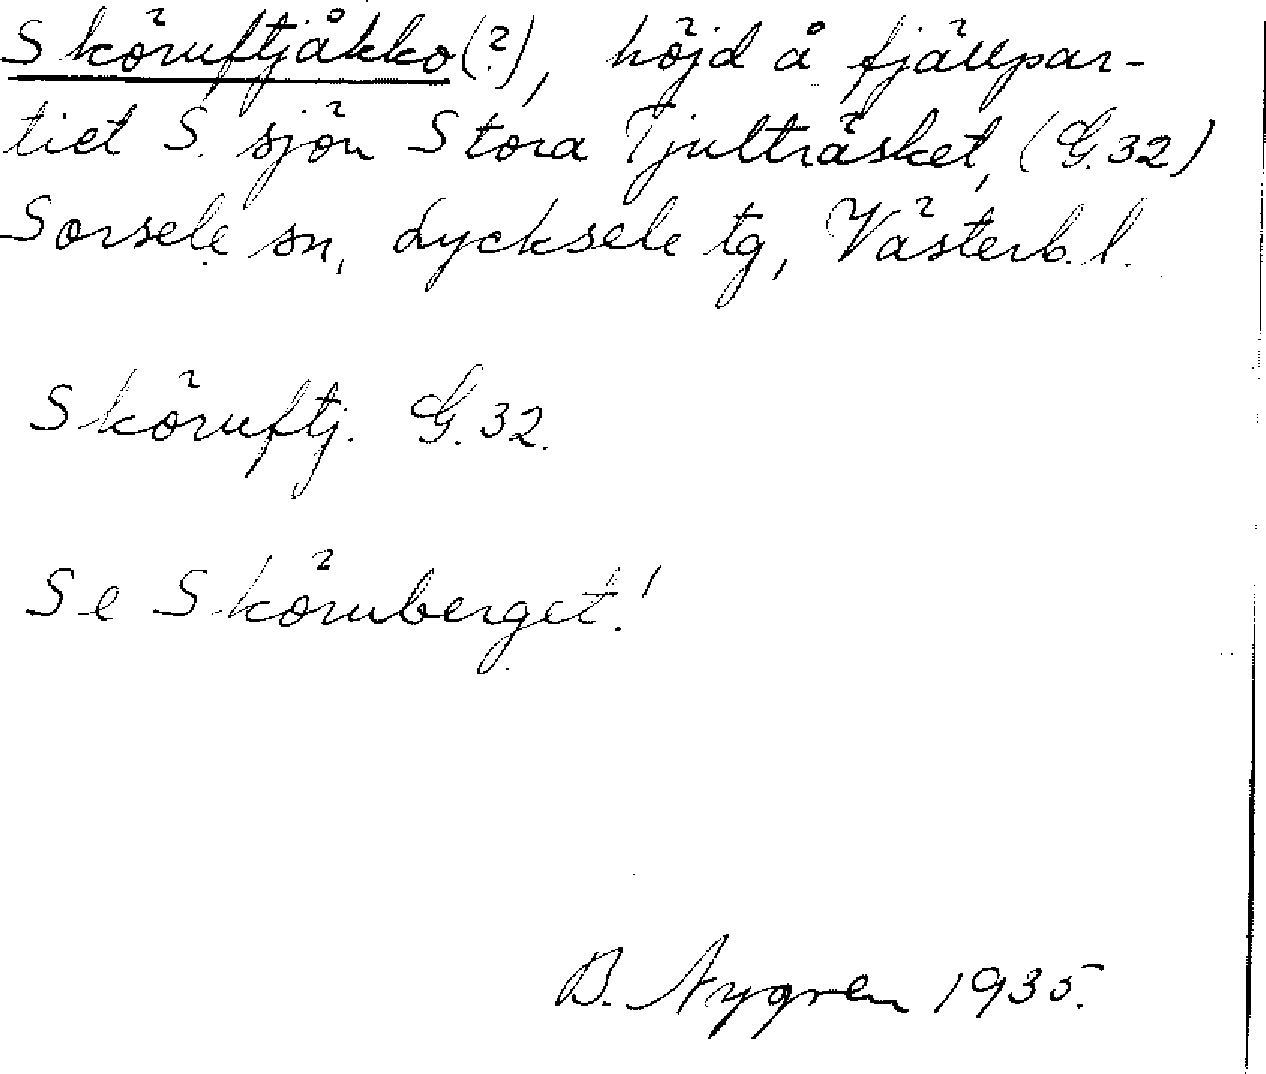 Sköruftjåkko(?), höjd å fjällpar-
tiet S. sjön Stora Tjulträsket, (G.32)
Sorsele sn, Lycksele tg, Västerb. l.
Sköruftj. G.32.
Se Skörvberget!
B. Nygren 1935.